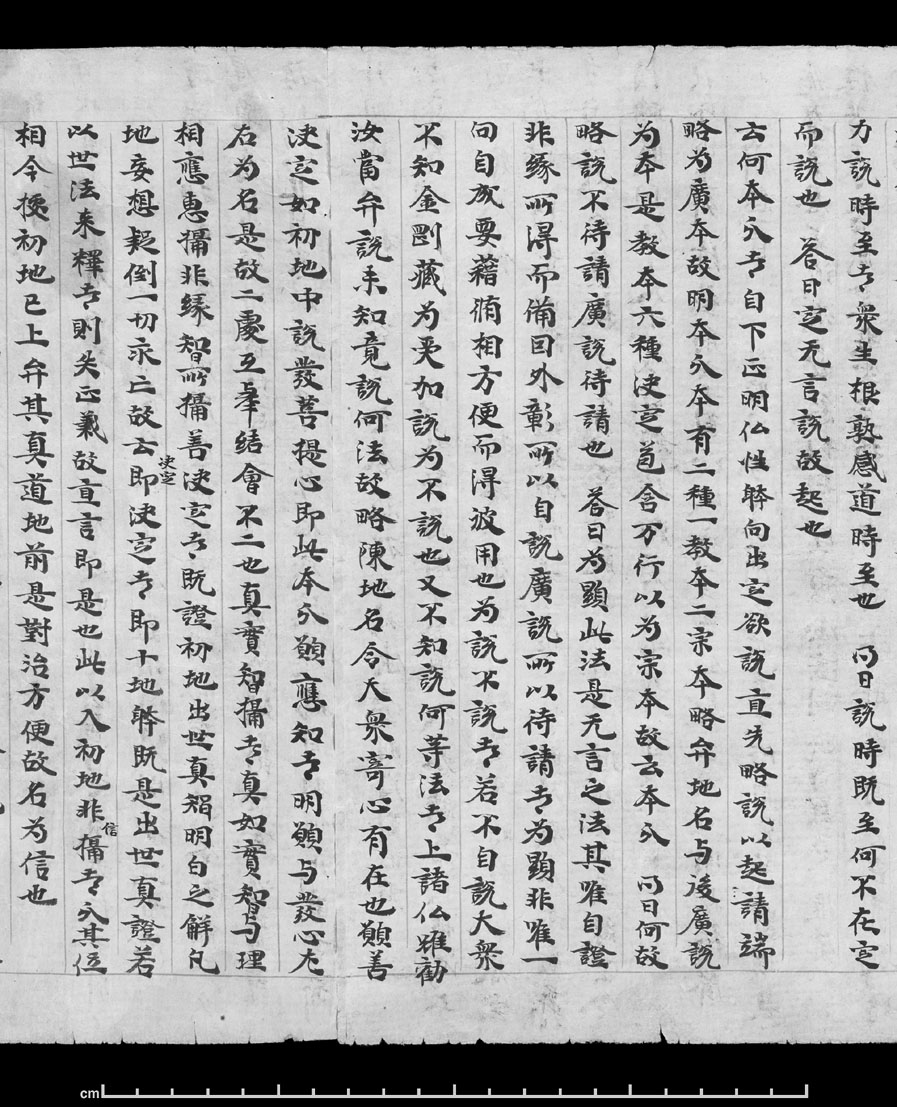 力說時至者衆生根熟感道時至也　問曰說時既至何不在㝎
而說也　答曰㝎无言說故起也
云何本分者自下正明仏性體向出㝎欲說直先略說以起請端
略為廣本故明本分本有二種一教本二宗本略弁地名与後廣說
為本是教本六種決㝎苞含万行以為宗本故云本分　問曰何故
略說不待請廣說待請也　答曰為顯此法是无言之法其唯自證
非緣所得而備因外彰所以自說廣說所以待請者為顯非唯一
向自成要藉脩相方便而得彼用也為說不說者若不自說大衆
不知金剛藏為受加說為不說也又不知說何等法者上諸仏雖勸
汝當弁說未知竟說何法故略陳地名令大衆寄心有在也願善
決㝎如初地中說發菩提心即此本分願應知者明願与發心左
右為名是故二處互舉結會不二也真實智攝者真如實智与理
相應惠攝非緣智所攝善決㝎者既證初地出世真智明白之解凡
地妄想疑倒一切永亡故云即決㝎決㝎者即十地體既是出世真證若
以世法来釋者則失正義故直言即是也此以入初地非信攝者分其位
相令揀初地已上弁其真道地前是對治方便故名為信也